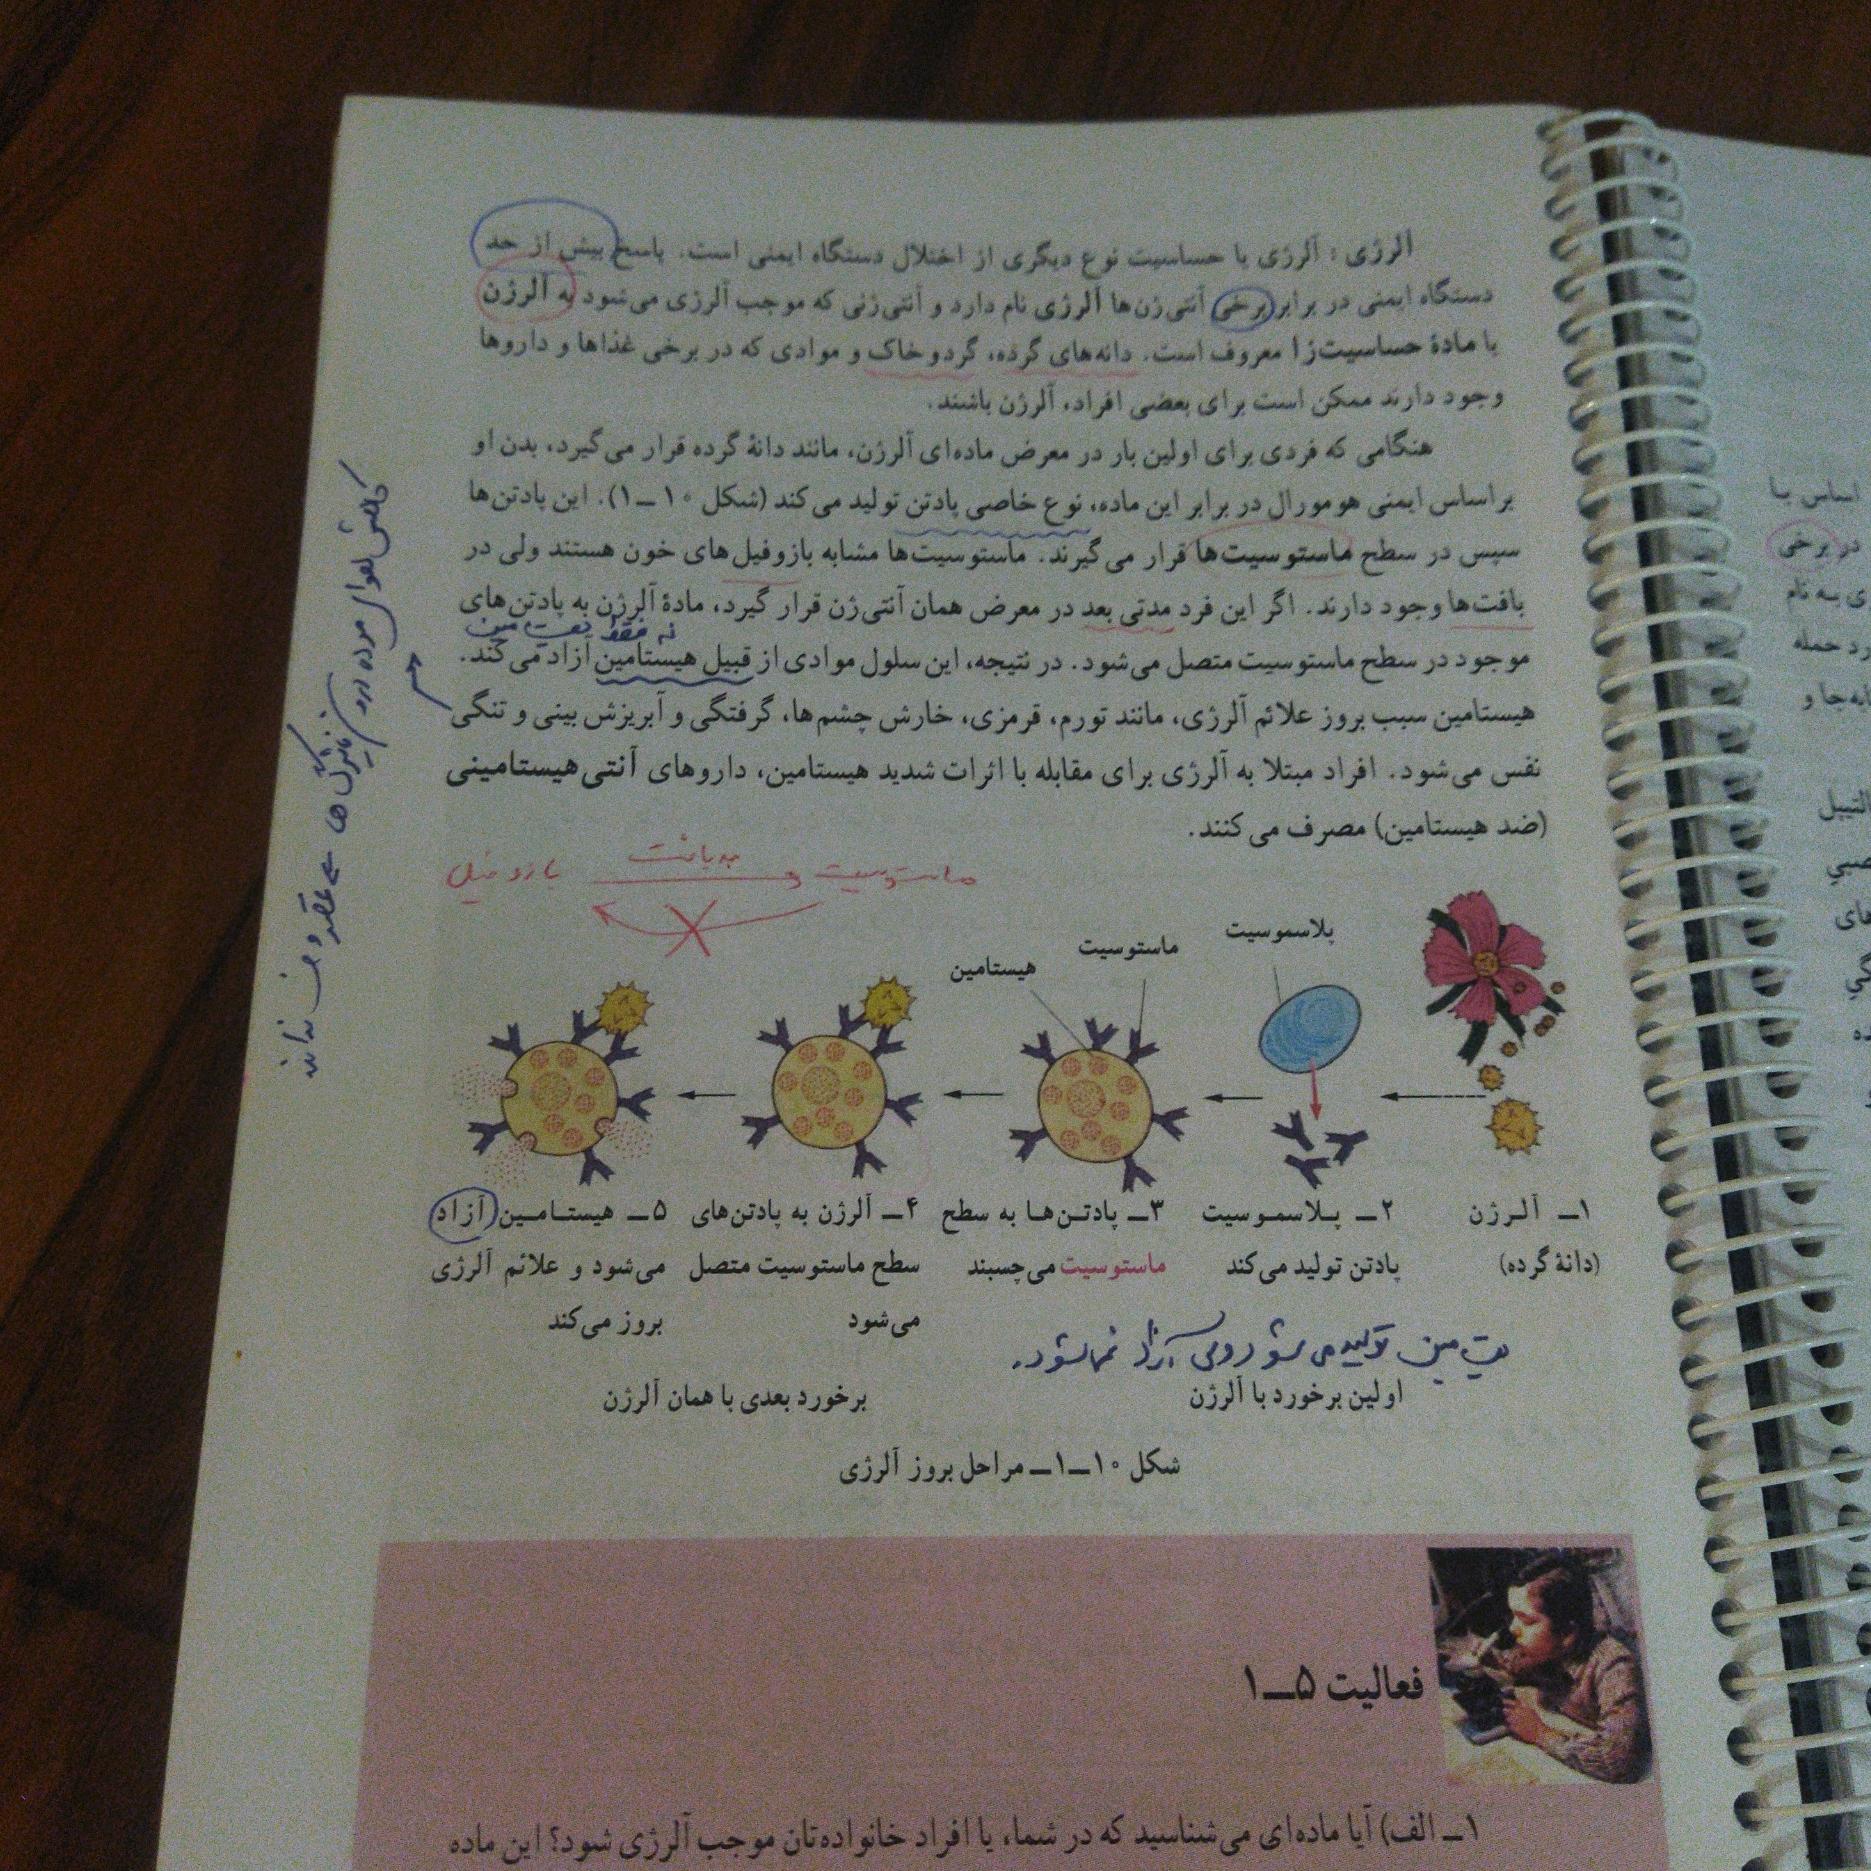 آلرژی : آلرژی یا حساسیت نوع دیگری از اختلال دستگاه ایمنی است. پاسخ بیش از حد
دستگاه ایمنی در برابر برخی آنتی‌ژن‌ها آلرژی نام دارد و آنتی‌ژنی که موجب آلرژی می‌شود به آلرژن
یا مادهٔ حساسیت‌زا معروف است. دانه‌های گرده، گرد و خاک و موادی که در برخی غذاها و داروها
وجود دارند ممکن است برای بعضی افراد، آلرژن باشند.
هنگامی که فردی برای اولین بار در معرض ماده‌ای آلرژن، مانند دانهٔ گرده قرار می‌گیرد، بدن او
براساس ایمنی هومورال در برابر این ماده، نوع خاصی پادتن تولید می‌کند (شکل ۱۰ــ۱). این پادتن‌ها
سپس در سطح ماستوسیت‌ها قرار می‌گیرند. ماستوسیت‌ها مشابه بازوفیل‌های خون هستند ولی در
بافت‌ها وجود دارند. اگر این فرد مدتی بعد در معرض همان آنتی‌ژن قرار گیرد، مادهٔ آلرژن به پادتن‌های
نه فقط هیستامین
موجود در سطح ماستوسیت متصل می‌شود. در نتیجه، این سلول موادی از قبیل هیستامین آزاد می‌کند.
هیستامین سبب بروز علائم آلرژی، مانند تورم، قرمزی، خارش چشم‌ها، گرفتگی و آبریزش بینی و تنگی
نفس می‌شود. افراد مبتلا به آلرژی برای مقابله با اثرات شدید هیستامین، داروهای آنتی‌هیستامینی
(ضد هیستامین) مصرف می‌کنند.
ماستوسیت به بافت بازوفیل
پلاسموسیت
ماستوسیت
هیستامین
۱ــ آلرژن
(دانهٔ گرده)
۲ــ پلاسموسیت
پادتن تولید می‌کند
۳ــ پادتن‌ها به سطح
ماستوسیت می‌چسبند
۴ــ آلرژن به پادتن‌های
سطح ماستوسیت متصل
می‌شود
۵ــ هیستامین آزاد
می‌شود و علائم آلرژی
بروز می‌کند
هیستامین تولید می‌شود ولی آزاد نمی‌شود.
اولین برخورد با آلرژن
برخورد بعدی با همان آلرژن
شکل ۱۰ــ۱ــ مراحل بروز آلرژی
فعالیت ۵ــ۱
۱ــ الف) آیا ماده‌ای می‌شناسید که در شما، یا افراد خانواده‌تان موجب آلرژی شود؟ این ماده
اساس با
در برخی
ی به نام
رد حمله